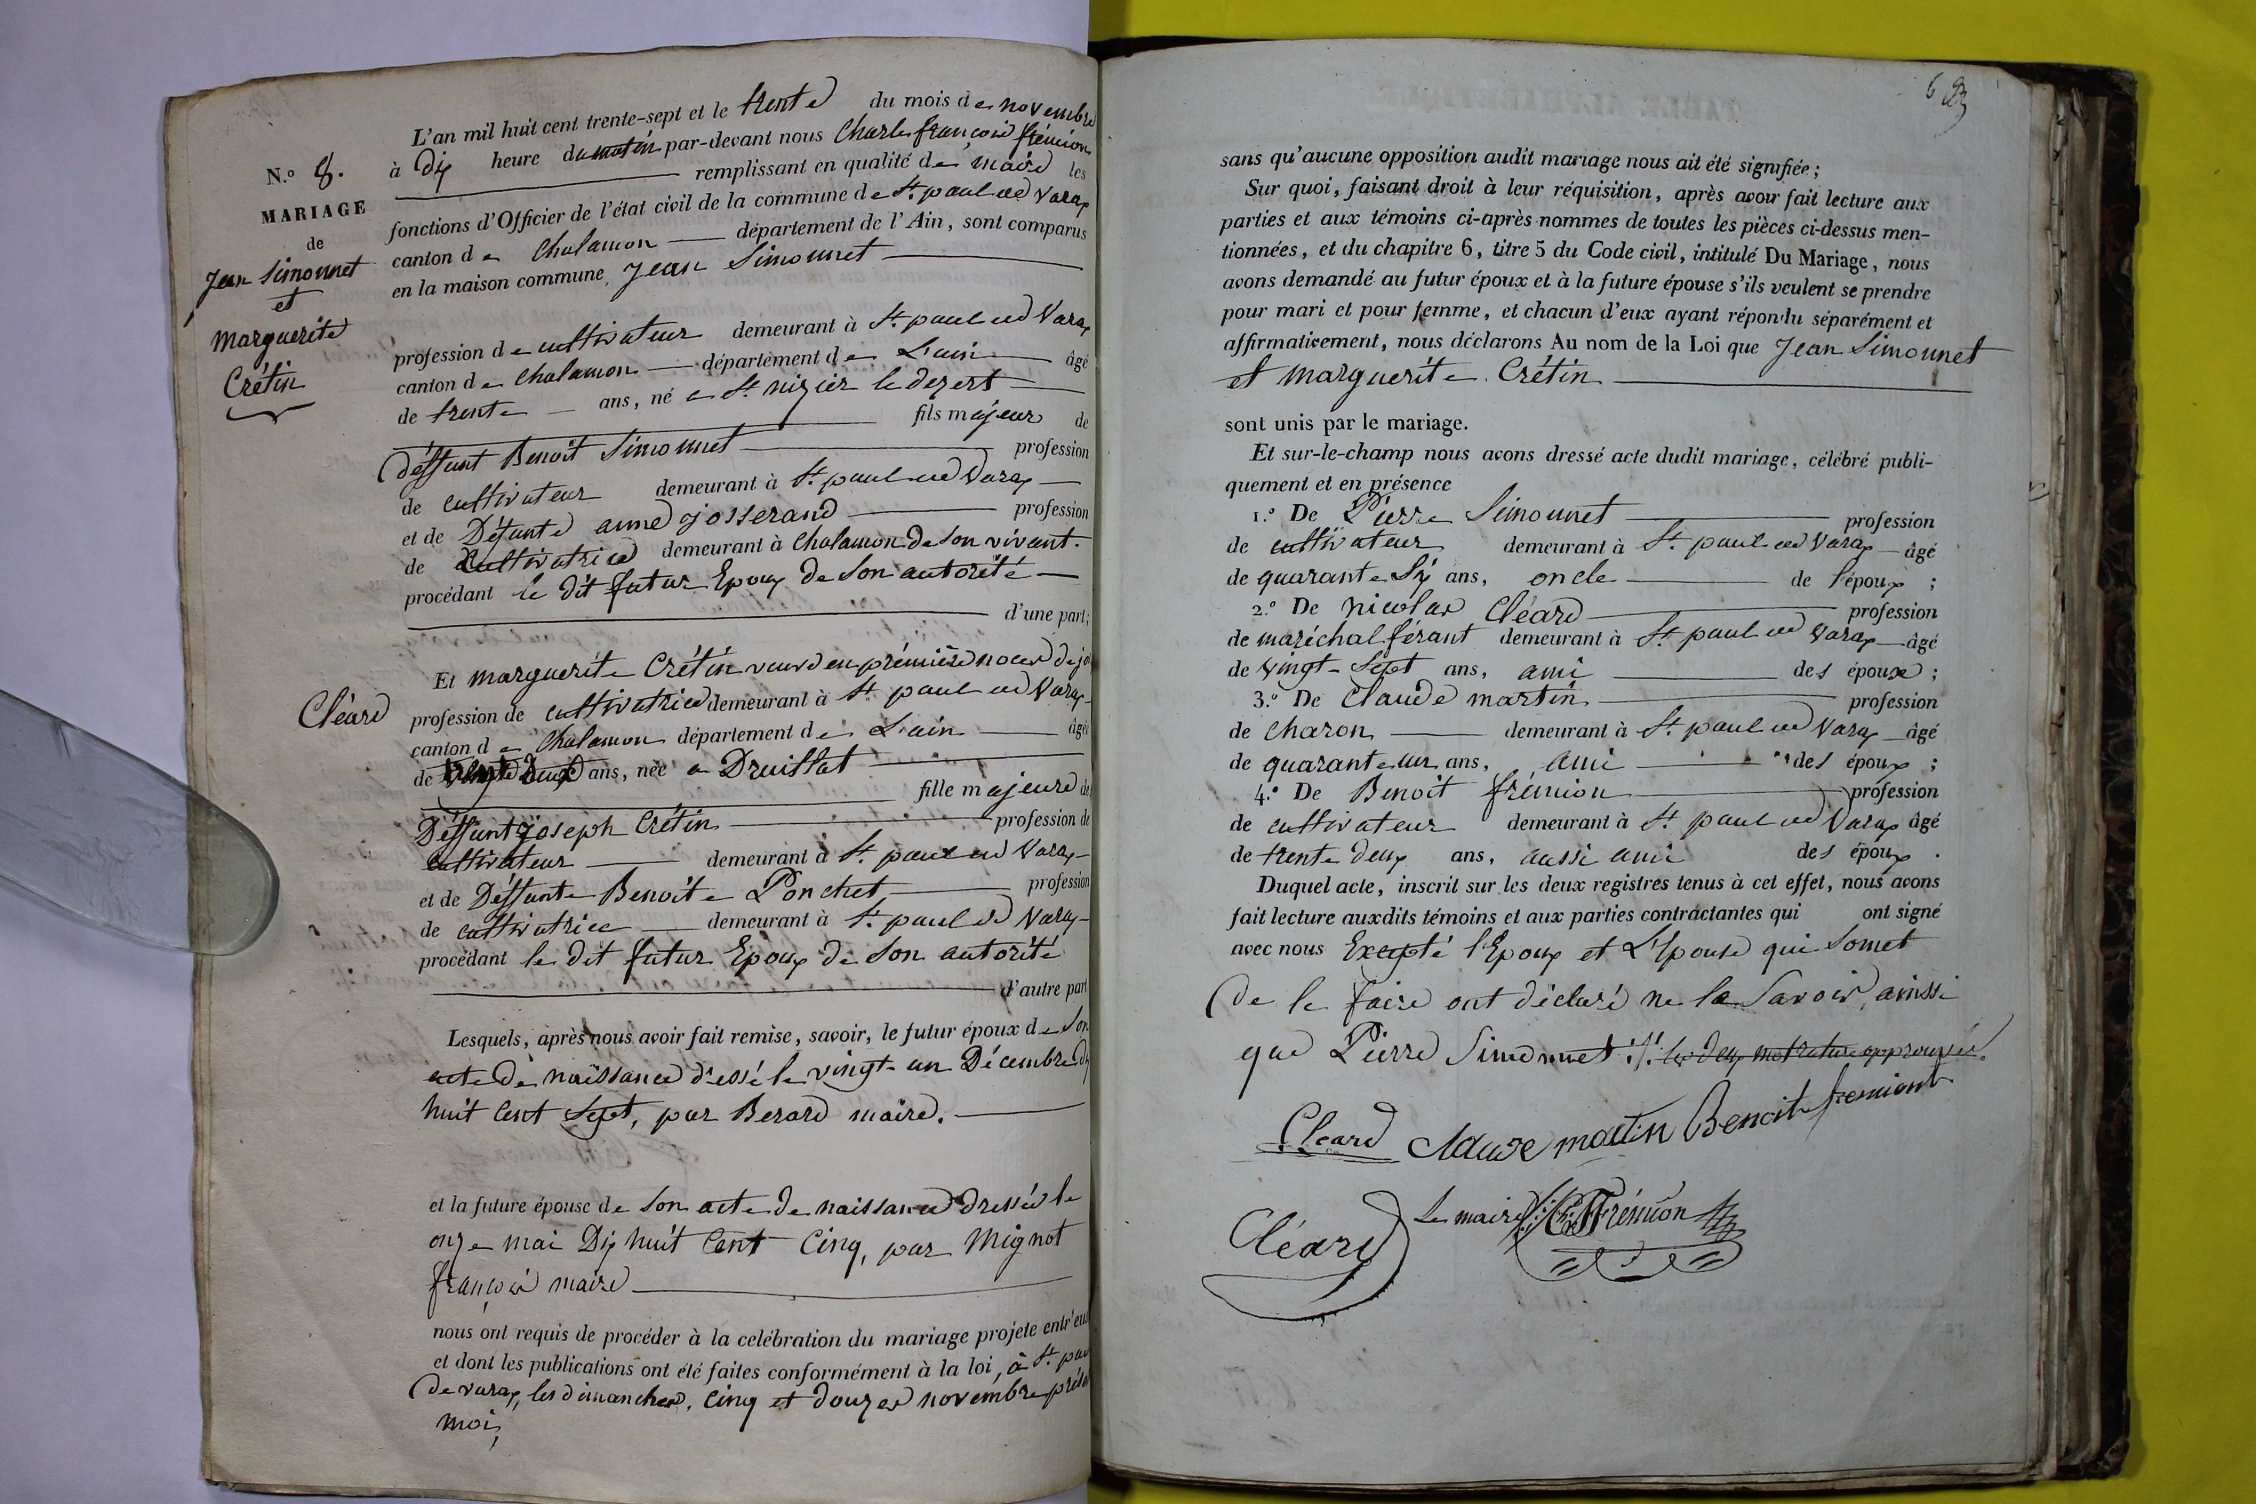 N.º 8.
MARIAGE
de
Jean Simonnet
et
Marguerite
Crétin
L'an mil huit cent trente-sept et le trente du mois de novembre
à dix heure du matin par-devant nous Charles françois frémion
remplissant en qualité de maire les
fonctions d'Officier de l'état civil de la commune de St. paul de Varax
canton de Chalamon département de l'Ain, sont comparus
en la maison commune, Jean Simonnet
profession de cultivateur demeurant à St. paul de Varax
canton de Chalamon département de L'ain âgé
de trente ans, né a St. nizier le dezert
fils majeur de
déffunt Benoit Simonnet profession
de cultivateur demeurant à St. paul de Varax
et de Défunte anne josserand profession
de Cultivatrice demeurant à Chalamon de son vivant.
procédant le dit futur Epoux de son autorité
d'une part;
Et marguerite Crétin veuve en première noces de
Cléard
profession de cultivatrice demeurant à St. paul de Varax
canton de Chalamon département de L'ain âgée
de trente deux ans, née a Druillat
fille majeure de
Déffunt Joseph Crétin profession de
Cultivateur demeurant à St. paul de Varax
et de Déffunte Benoite Ponchet profession
de cultivatrice demeurant à St. paul de Varax
procédant le dit futur Epoux de son autorité
d'autre part
Lesquels, après nous avoir fait remise, savoir, le futur époux de son
acte de naissance dressé le vingt-un Décembre dix
huit Cent Sept, par Berard maire.
et la future épouse de son acte de naissance dressée le
onze mai Dix huit Cent Cinq, par Mignot
françois maire
nous ont requis de procéder à la celébration du mariage projete entr'eux
et dont les publications ont été faites conformément à la loi, à St. paul
de varax, les dimanches, Cinq et douzes novembre présent
mois,
sans qu'aucune opposition audit mariage nous ait été signifiée;
Sur quoi, faisant droit à leur réquisition, après avoir fait lecture aux
parties et aux témoins ci-après nommes de toutes les pièces ci-dessus men-
tionnées, et du chapitre 6, titre 5 du Code civil, intitulé Du Mariage, nous
avons demandé au futur époux et à la future épouse s'ils veulent se prendre
pour mari et pour femme, et chacun d'eux ayant répondu séparément et
affirmativement, nous déclarons Au nom de la Loi que Jean Simonnet
et marguerite Crétin
sont unis par le mariage.
Et sur-le-champ nous avons dressé acte dudit mariage, célébré publi-
quement et en présence
1.º De Pierre Simonnet profession
de cultivateur demeurant à St. paul de Varax âgé
de quarante Six ans, oncle de l'époux ;
2.º De nicolas Cléard profession
de maréchal férant demeurant à St. paul de Varax âgé
de vingt-Sept ans, ami des époux ;
3.º De Claude martin profession
de charon demeurant à St. paul de Varax âgé
de quarante un ans, ami des époux ;
4.º De Benoit frémion profession
de cultivateur demeurant à St. paul de Varax âgé
de trente deux ans, aussi ami des époux .
Duquel acte, inscrit sur les deux registres tenus à cet effet, nous avons
fait lecture auxdits témoins et aux parties contractantes qui ont signé
avec nous Excepté l'Epoux et L'Epouse qui Somet
de le faire ont déclaré ne le Savoir, ainssi
que Pierre Simonnet ./. les deux mots rature approuvés.
Cleard Claude martin Benoit fremiont
Le maire Ch. F Frémion
Cléard